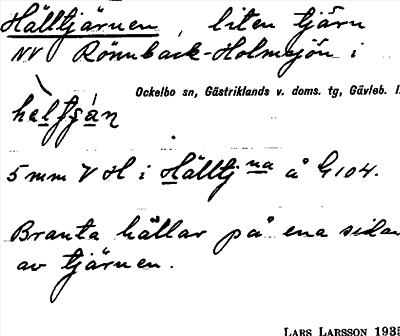 Hälltjärnen, liten tjärn
NV Rönnback-Holmsjön i
Ockelbo sn, Gästriklands v. doms. tg, Gävleb.
5 mm V H i Hälltjna å G104.
Branta hällar på ena sidan
av tjärnen.
LARS LARSSON 1935